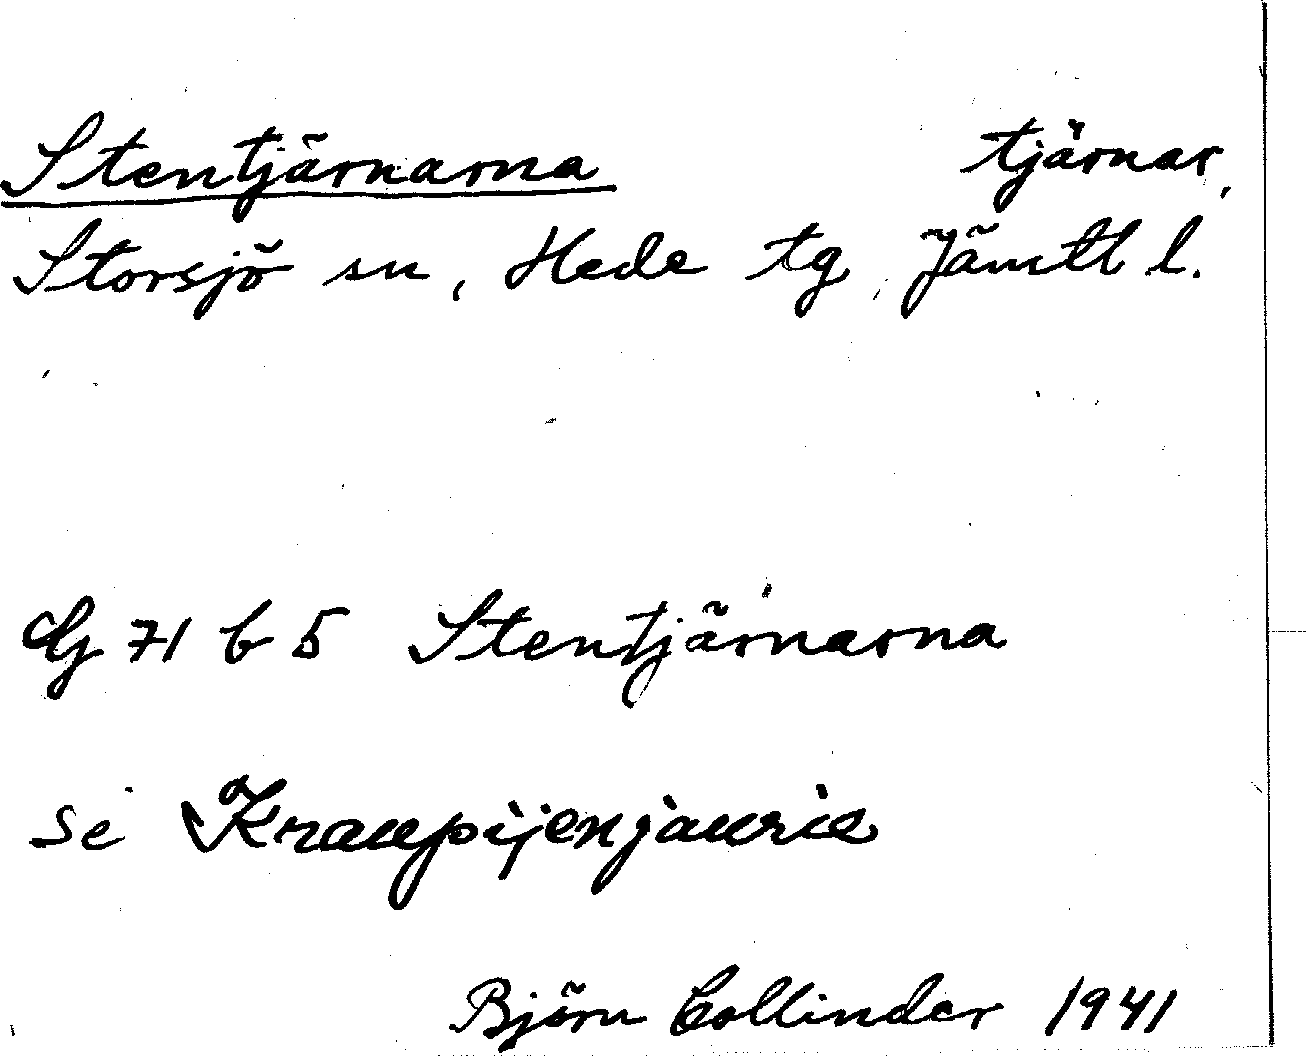 Stentjärnarna tjärnar,
Storsjö sn, Hede tg, Jämtl l.
Gj 71 b 5 Stentjärnarna
se Kraupijenjaurie
Björn Collinder 1941